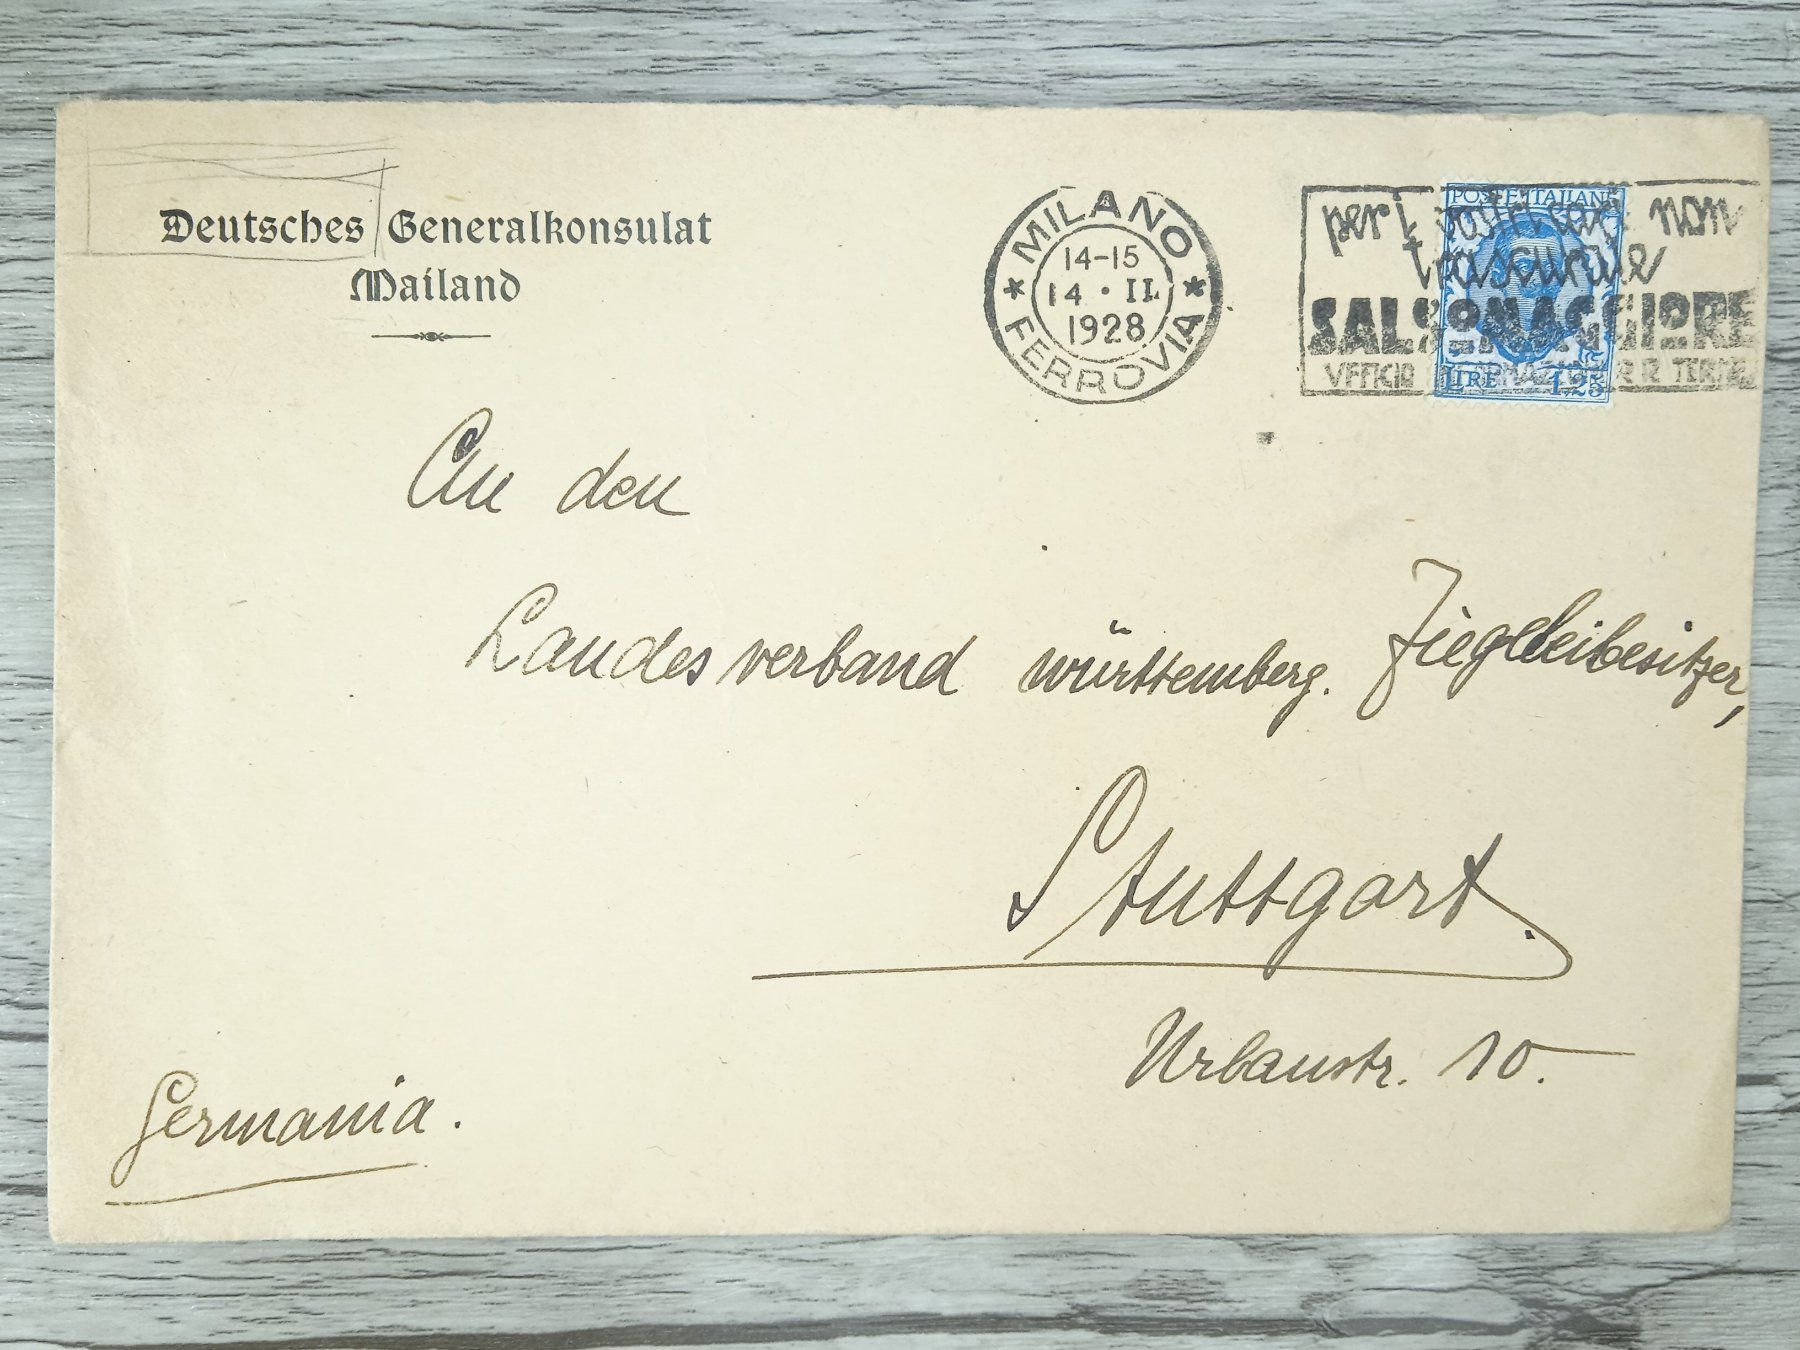 Deutsches Generalkonsulat
Mailand
MILANO
14-15
14 • II.
1928
* FERROVIA *
per i vostri non
trascurate
SALSOMAGGIORE
VFFICIO TERME
POSTE ITALIANE
LIRE 1,25
An den
Landesverband württemberg. Ziegeleibesitzer,
Stuttgart.
Urbanstr. 10.
Germania.